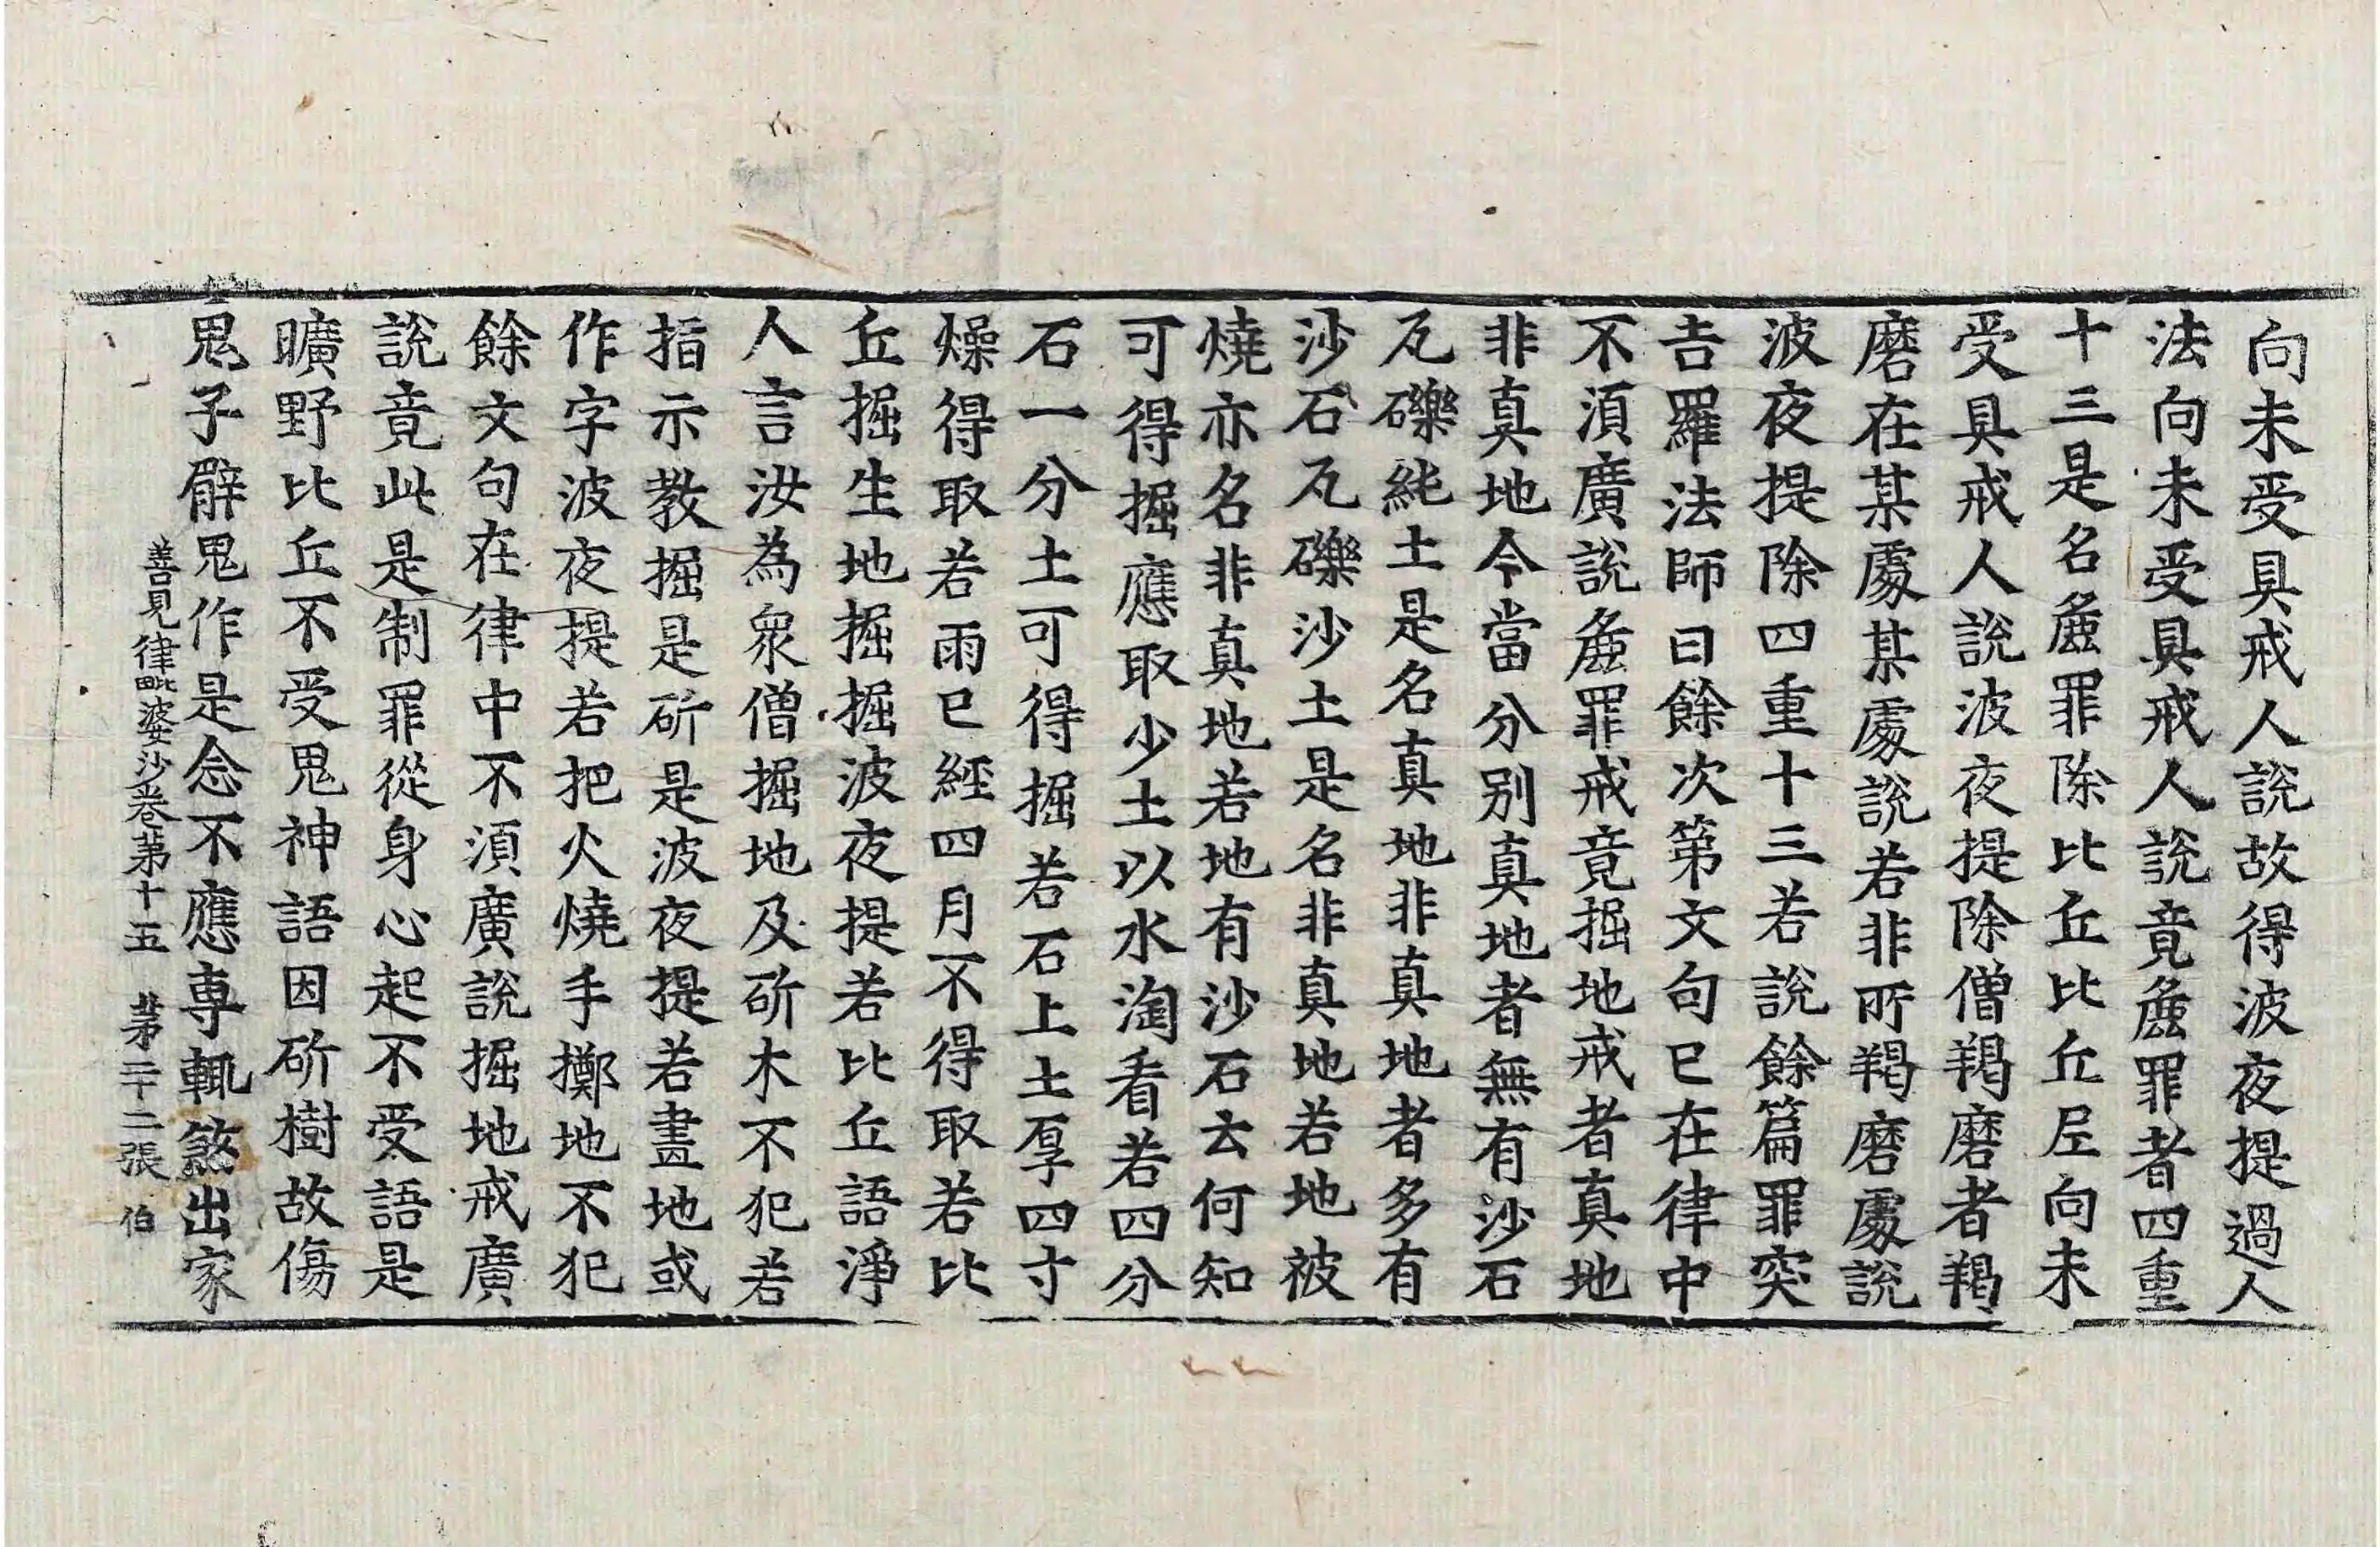 向未受具戒人說故得波夜提過人
法向未受具戒人說竟麁罪者四重
十三是名麁罪除比丘比丘尼向未
受具戒人說波夜提除僧羯磨者羯
磨在某處某處說若非所羯磨處說
波夜提除四重十三若說餘篇罪突
吉羅法師曰餘次第文句已在律中
不須廣說麁罪戒竟掘地戒者真地
非真地今當分別真地者無有沙石
瓦礫純土是名真地非真地者多有
沙石瓦礫沙土是名非真地若地被
燒亦名非真地若地有沙石云何知
可得掘應取少土以水淘看若四分
石一分土可得掘若石上土厚四寸
燥得取若雨已經四月不得取若比
丘掘生地掘掘波夜提若比丘語淨
人言汝為眾僧掘地及斫木不犯若
指示教掘是斫是波夜提若畫地或
作字波夜提若把火燒手擲地不犯
餘文句在律中不須廣說掘地戒廣
說竟此是制罪從身心起不受語是
曠野比丘不受鬼神語因斫樹故傷
鬼子臂鬼作是念不應專輒煞出家
善見律毗婆沙卷第十五 第二十二張 伯